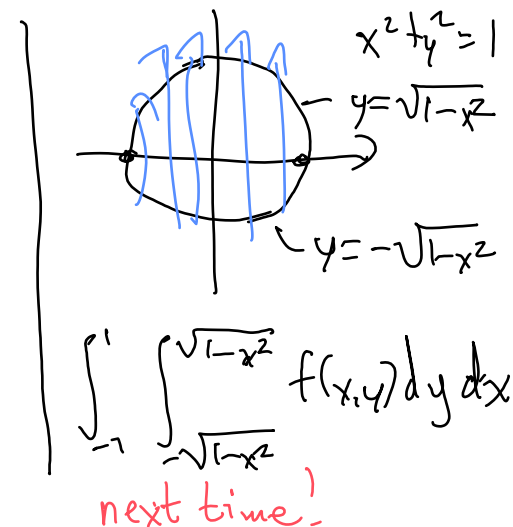 x² + y² = 1
y = √(1-x²)
y = -√(1-x²)
∫_{-1}^{1} ∫_{-√(1-x²)}^{√(1-x²)} f(x,y) dy dx
next time!